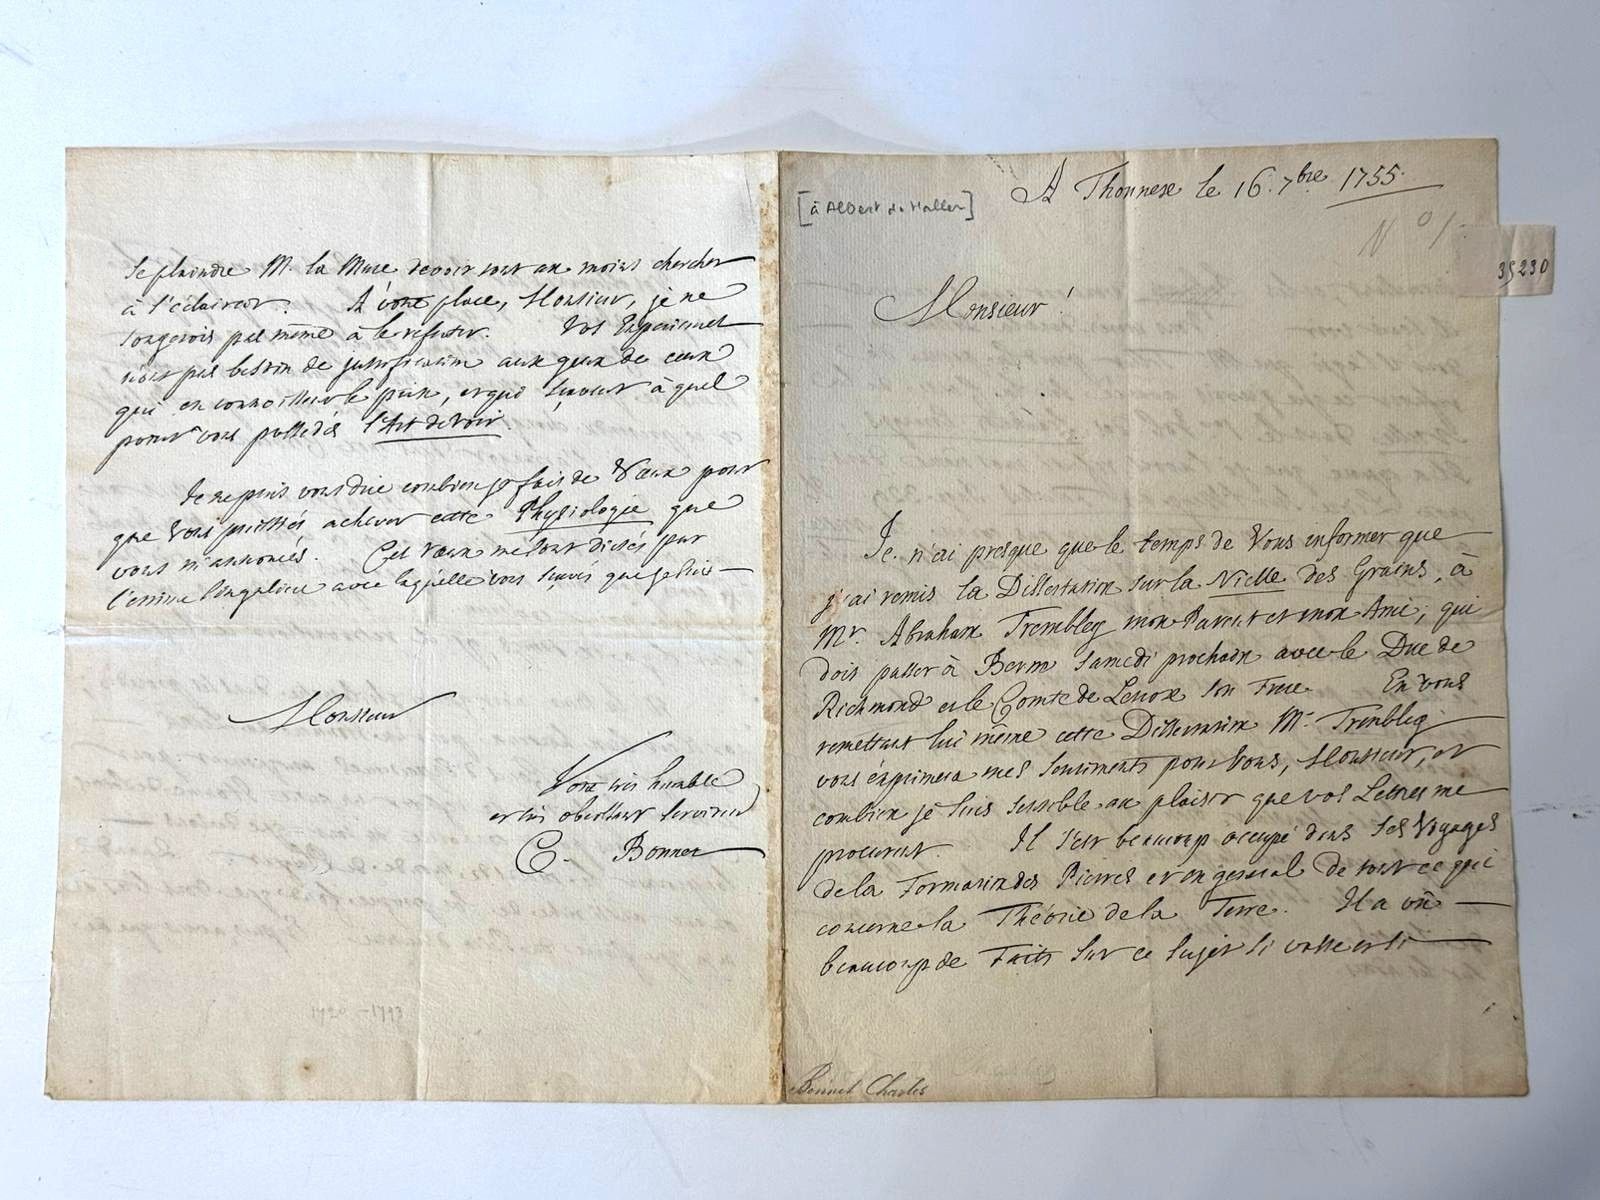 A Thonnex le 16. 7bre 1755.
[à Albert de Haller]
N° 1
35230
Monsieur!
Je n'ai presque que le temps de Vous informer que
j'ai remis la Dissertation sur la Nielle des Grains, à
Mr. Abraham Trembley mon Parent et mon Ami, qui
doit passer à Bern Samedi prochain avec le Duc de
Richmond et le Comte de Lenox son Frere. En vous
remettant lui même cette Dissertation Mr. Trembley
vous exprimera mes sentiments pour Vous, Monsieur, et
combien je suis sensible au plaisir que vos Lettres me
procurent. Il s'est beaucoup occupé dans ses Voyages
de la Formation des Pierres et en general de tout ce qui
concerne la Théorie de la Terre. Il a vû
beaucoup de Faits sur ce sujet si vaste et si
Bonnet Charles
se plaindre M. la Mure devoit tout au moins chercher
à s'éclaircir. A vôtre place, Monsieur, je ne
songerois pas même à le refuter. Vos Experiences
n'ont pas besoin de justification aux yeux de ceux
qui en connoissent le prix, et qui savent à quel
point vous possedés l'Art de voir.
Je ne puis vous dire combien je fais de Vœux pour
que Vous puissiés achever cette Physiologie que
vous m'annoncés. Ces vœux me sont dictés par
l'estime singuliere avec laquelle vous savés que je suis
Monsieur
Votre très humble
et très obeissant serviteur
C. Bonnet
1720-1793